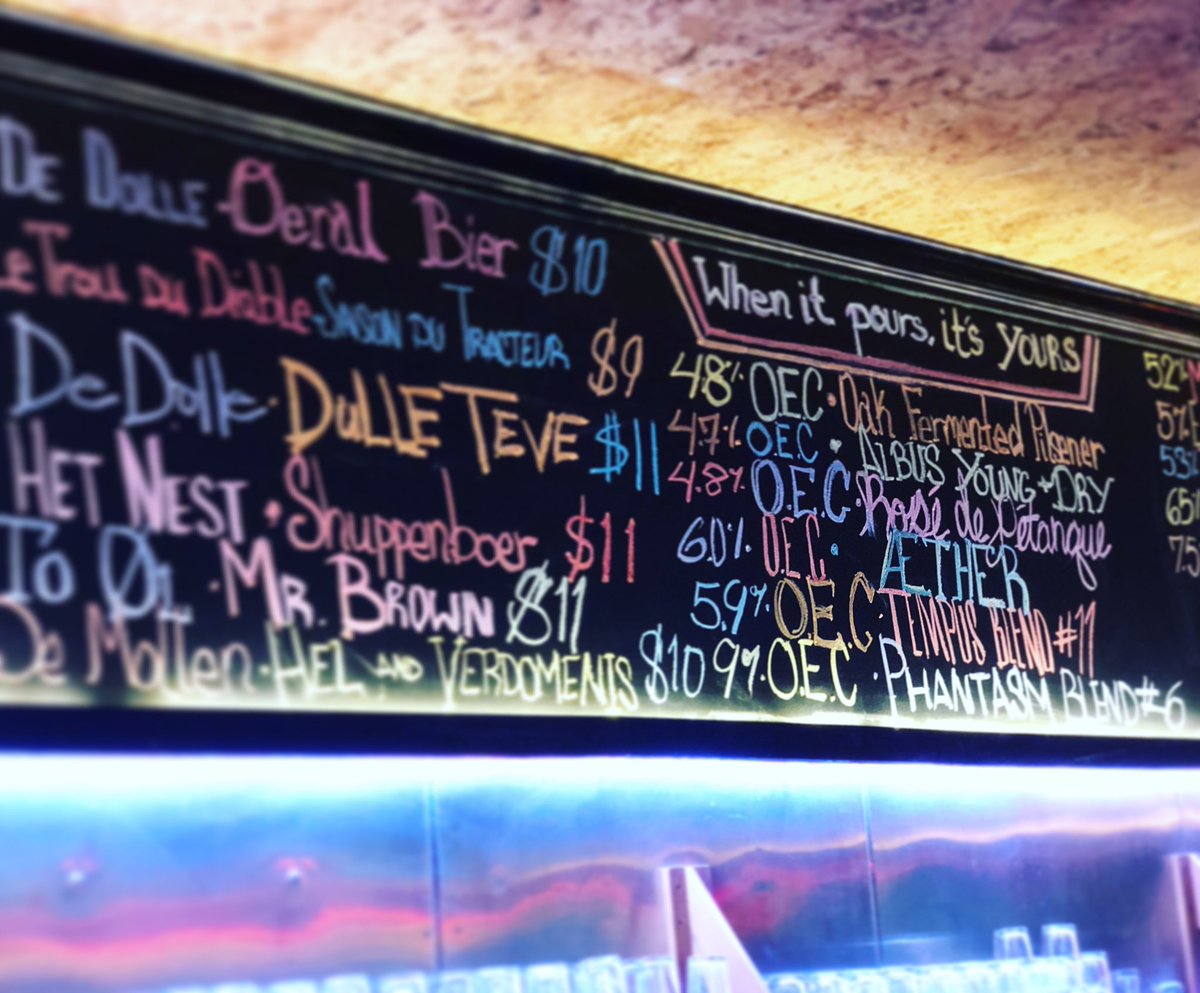 De Dolle - Oeral Bier $10
Le Trou du Diable - Saison du Tracteur $9
De Dolle · Dulle Teve $11
Het Nest · Shuppenboer $11
To Øl · Mr. Brown $11
De Mollen · Hel and Verdoments $10
When it pours, it's yours
4.8% OEC · Oak Fermented Pilsener
4.7% O.E.C · Albus Young + Dry
4.8% O.E.C · Rosé de Pétanque
6.0% O.E.C. · Æther
5.9% · OEC · Tempus Blend #11
9% · O.E.C · Phantasm Blend #6